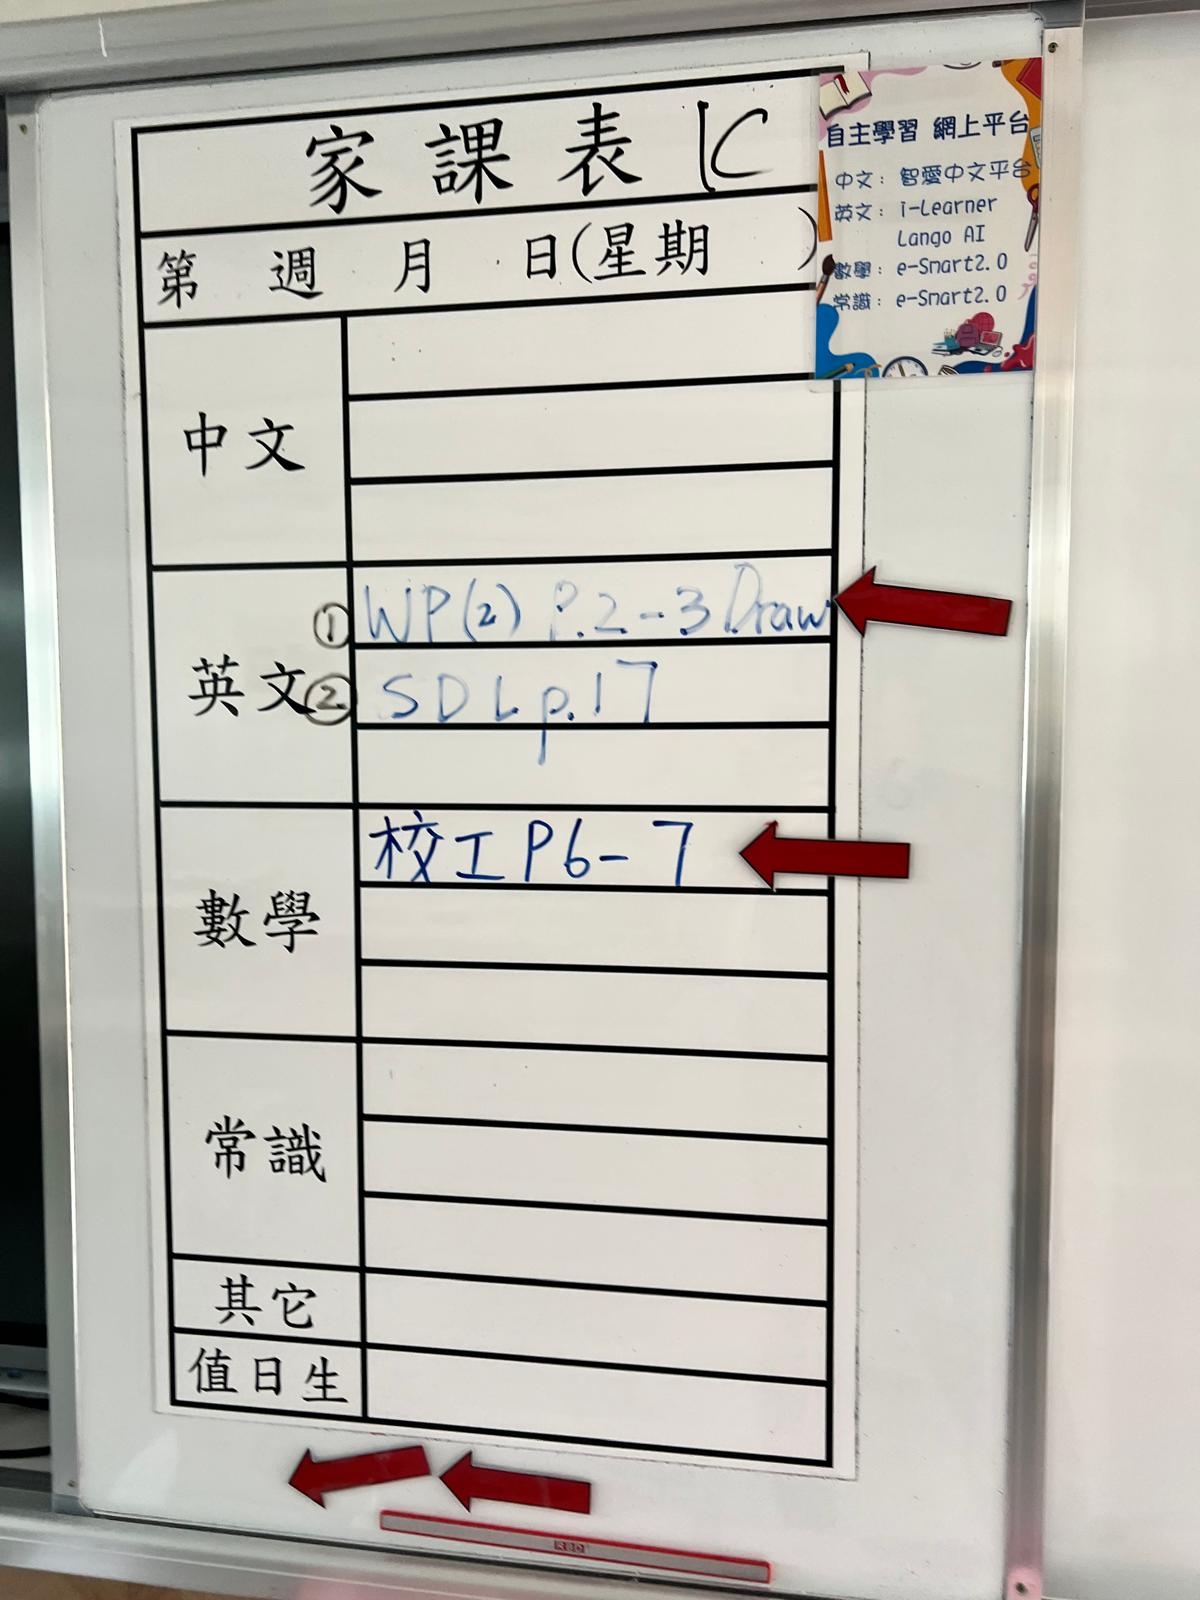 家課表 1C
第 週 月 日(星期 )
自主學習 網上平台
中文：智愛中文平台
英文：i-Learner
Lango AI
數學：e-Smart2.0
常識：e-Smart2.0
中文
英文
① WP(2) P.2-3 Draw
② SDL p.17
數學
校工 P6-7
常識
其它
值日生